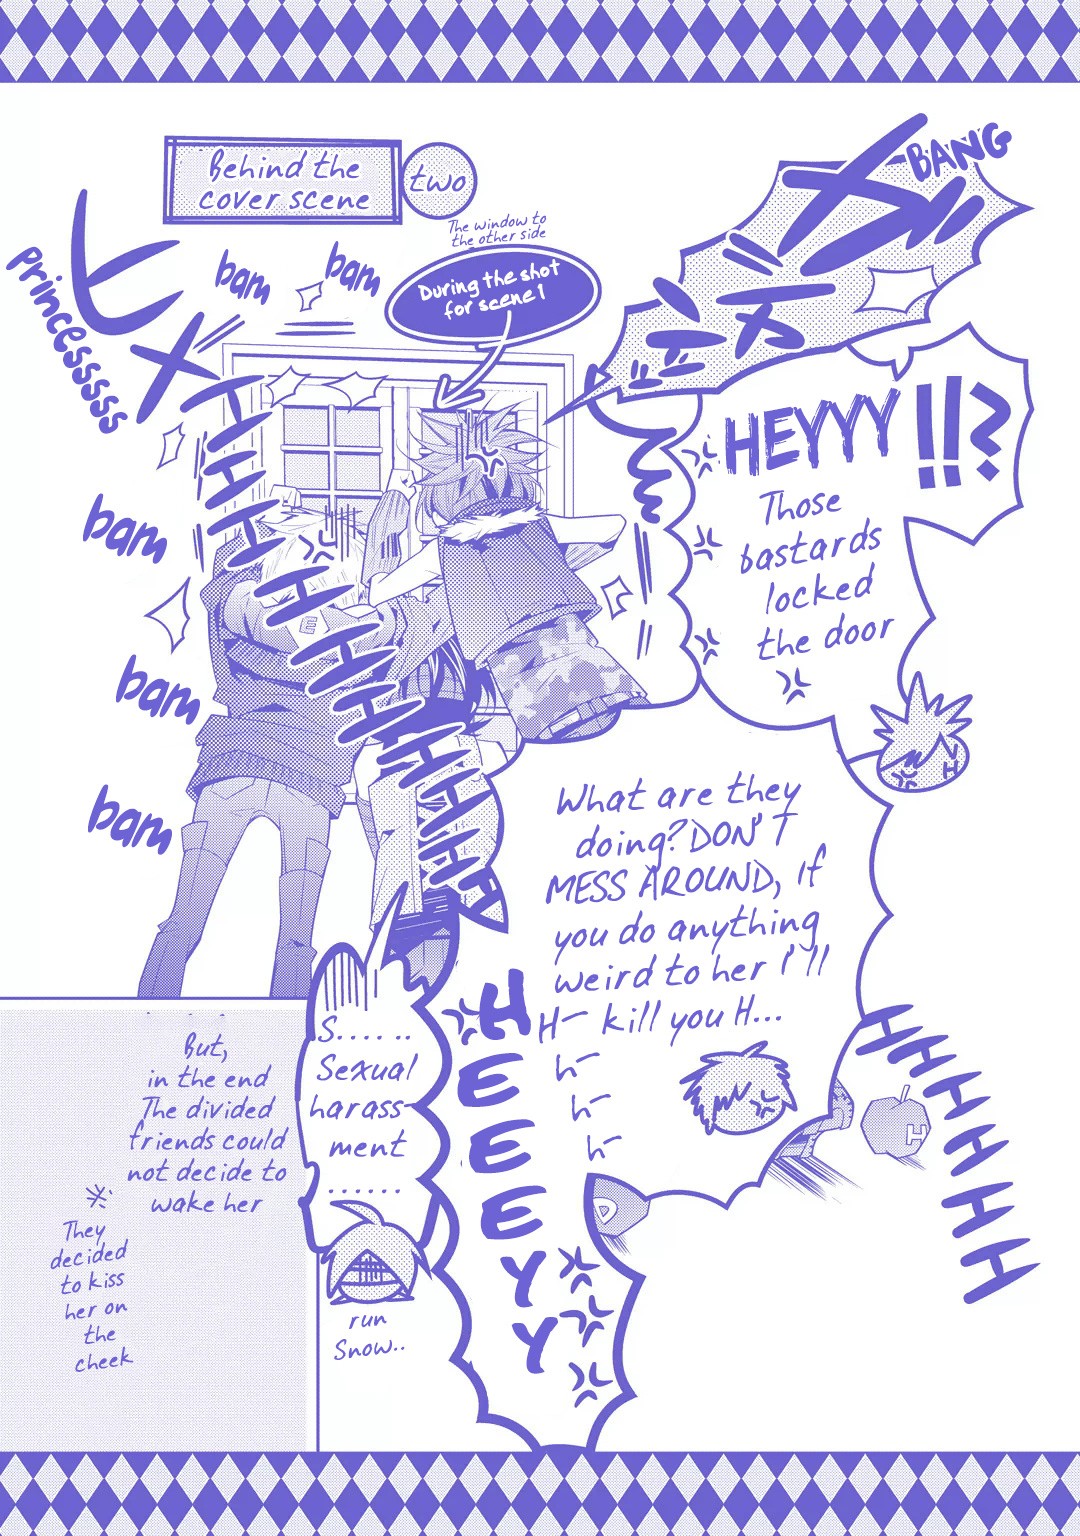 Behind the
cover scene
two
The window to
the other side
During the shot
for scene 1
BANG
HEYYY!!?
Those
bastards
locked
the door
Princesssss
bam
bam
bam
bam
bam
ヒメ
E
What are they
doing? DON'T
MESS AROUND, If
you do anything
weird to her I'll
H— kill you H...
h—
h—
h—
HEEEYY
HHHHHHH
H
D
S......
Sexual
harass-
ment
......
run
Snow..
But,
in the end
The divided
friends could
not decide to
wake her
※
They
decided
to kiss
her on
the
cheek